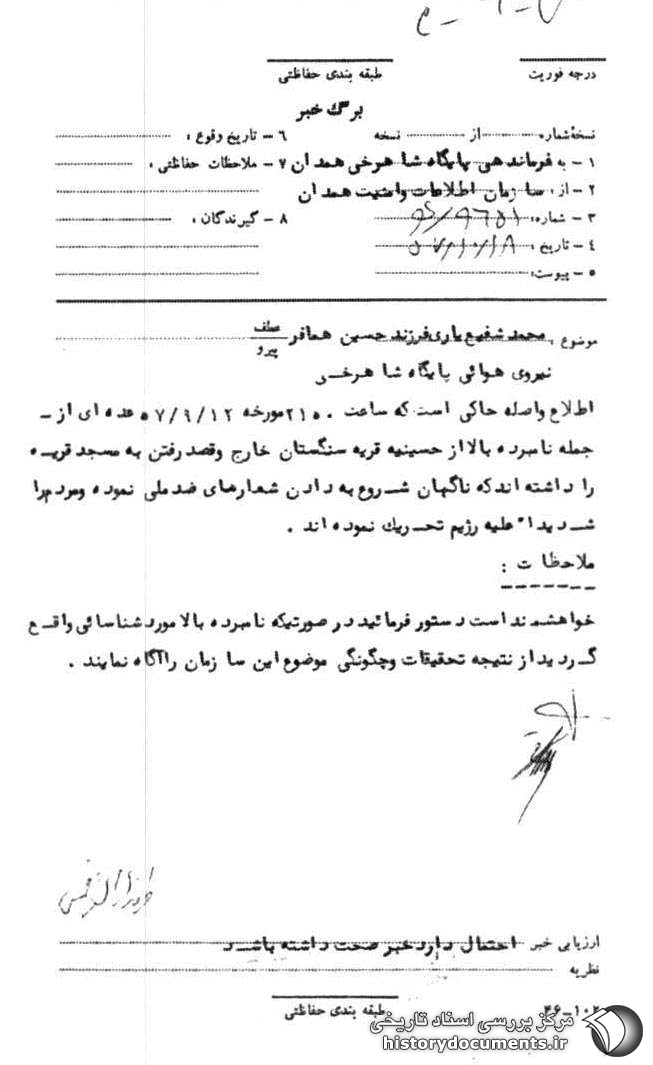 درجه فوریت
طبقه بندی حفاظتی
برگ خبر
نسخه‌شماره از نسخه
۶ - تاریخ وقوع :
۱ - به فرماندهی پایگاه شاهرخی همدان
۷ - ملاحظات حفاظتی :
۲ - از : سازمان اطلاعات وامنیت همدان
۳ - شماره:
۸ - گیرندگان :
۴ - تاریخ :
۵ - پیوست:
موضوع : محمد شفیع یاری فرزند حسین همافر
عطف
پیرو
نیروی هوائی پایگاه شاهرخی
اطلاع واصله حاکی است که ساعت ۲۱۵۰ مورخه ۵۷/۹/۱۲ عده ای از -
جمله نامبرده بالا از حسینیه قریه سنگستان خارج وقصد رفتن به مسجد قریه
را داشته اند که ناگهان شروع به دادن شعارهای ضد ملی نموده ومردم را
شدیدا" علیه رژیم تحریک نموده اند .
ملاحظات :
خواهشمند است دستور فرمائید در صورتیکه نامبرده بالا مورد شناسائی واقع
گردید از نتیجه تحقیقات وچگونگی موضوع این سازمان را آگاه نمایند .
ارزیابی خبر احتمال دارد خبر صحت داشته باشد
نظریه
۳۶-۱۰۲
طبقه بندی حفاظتی
مرکز بررسی اسناد تاریخی
historydocuments.ir